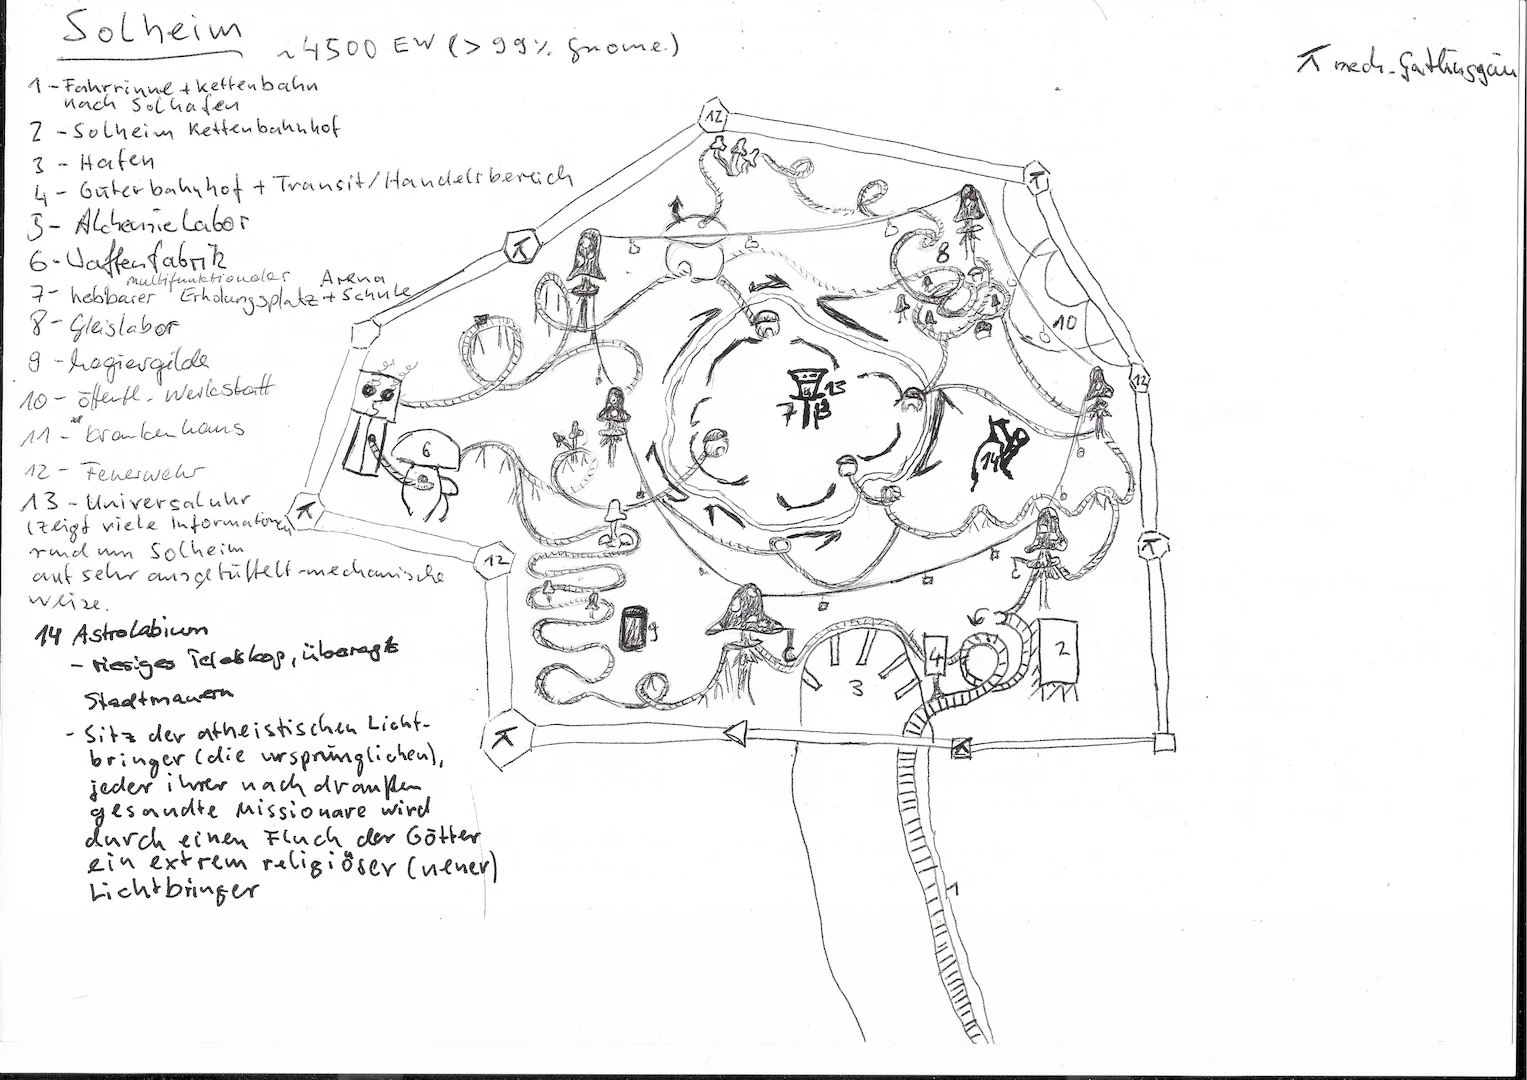 Solheim
~4500 EW (>99% Gnome)
1 - Fahrrinne + Kettenbahn
nach Solhafen
2 - Solheim Kettenbahnhof
3 - Hafen
4 - Güterbahnhof + Transit/Handelsbereich
5 - Alchemielabor
6 - Waffenfabrik
multifunktionaler Arena
7 - hebbarer Erholungsplatz + Schule
8 - Gleislabor
9 - Magiergilde
10 - öffentl. Werkstatt
11 - Krankenhaus
12 - Feuerwehr
13 - Universaluhr
(zeigt viele Informationen
rund um Solheim
auf sehr ausgetüftelt-mechanische
Weise.
14 Astrolabium
- riesiges Teleskop, überragt
Stadtmauern
- Sitz der atheistischen Licht-
bringer (die ursprünglichen),
jeder ihrer nach draußen
gesandte Missionare wird
durch einen Fluch der Götter
ein extrem religiöser (neuer)
Lichtbringer
mech.
12
8
10
12
13
7
6
14
12
9
4
2
3
1